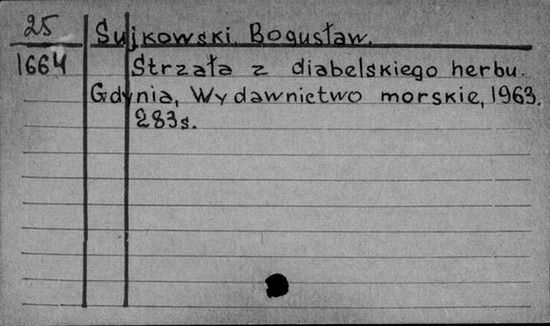 25 Sujkowski Bogusław.
1664 Strzała z diabelskiego herbu.
Gdynia, Wydawnictwo morskie, 1963.
283s.